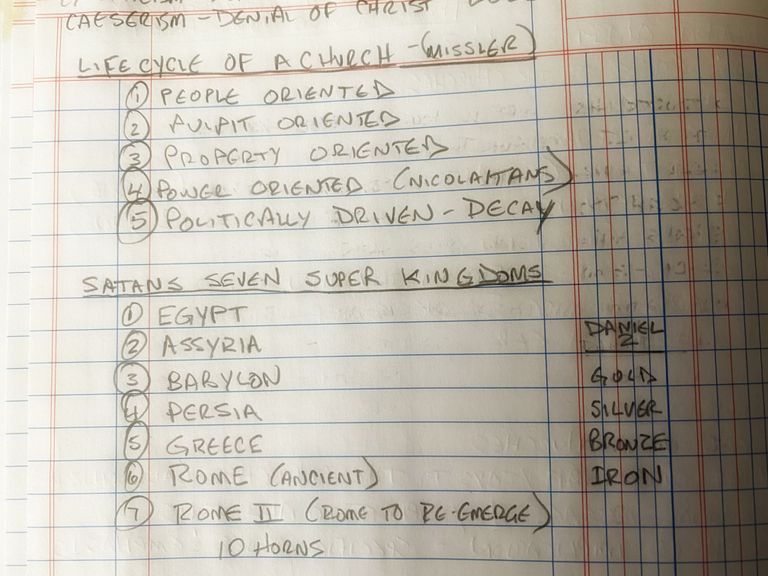 CAESERISM - DENIAL OF CHRIST
LIFE CYCLE OF A CHURCH - (MISSLER)
① PEOPLE ORIENTED
② PULPIT ORIENTED
③ PROPERTY ORIENTED
④ POWER ORIENTED (NICOLAITANS)
⑤ POLITICALLY DRIVEN - DECAY
SATANS SEVEN SUPER KINGDOMS
① EGYPT
② ASSYRIA
③ BABYLON
④ PERSIA
⑤ GREECE
⑥ ROME (ANCIENT)
⑦ ROME II (ROME TO RE-EMERGE)
10 HORNS
DANIEL
2
GOLD
SILVER
BRONZE
IRON